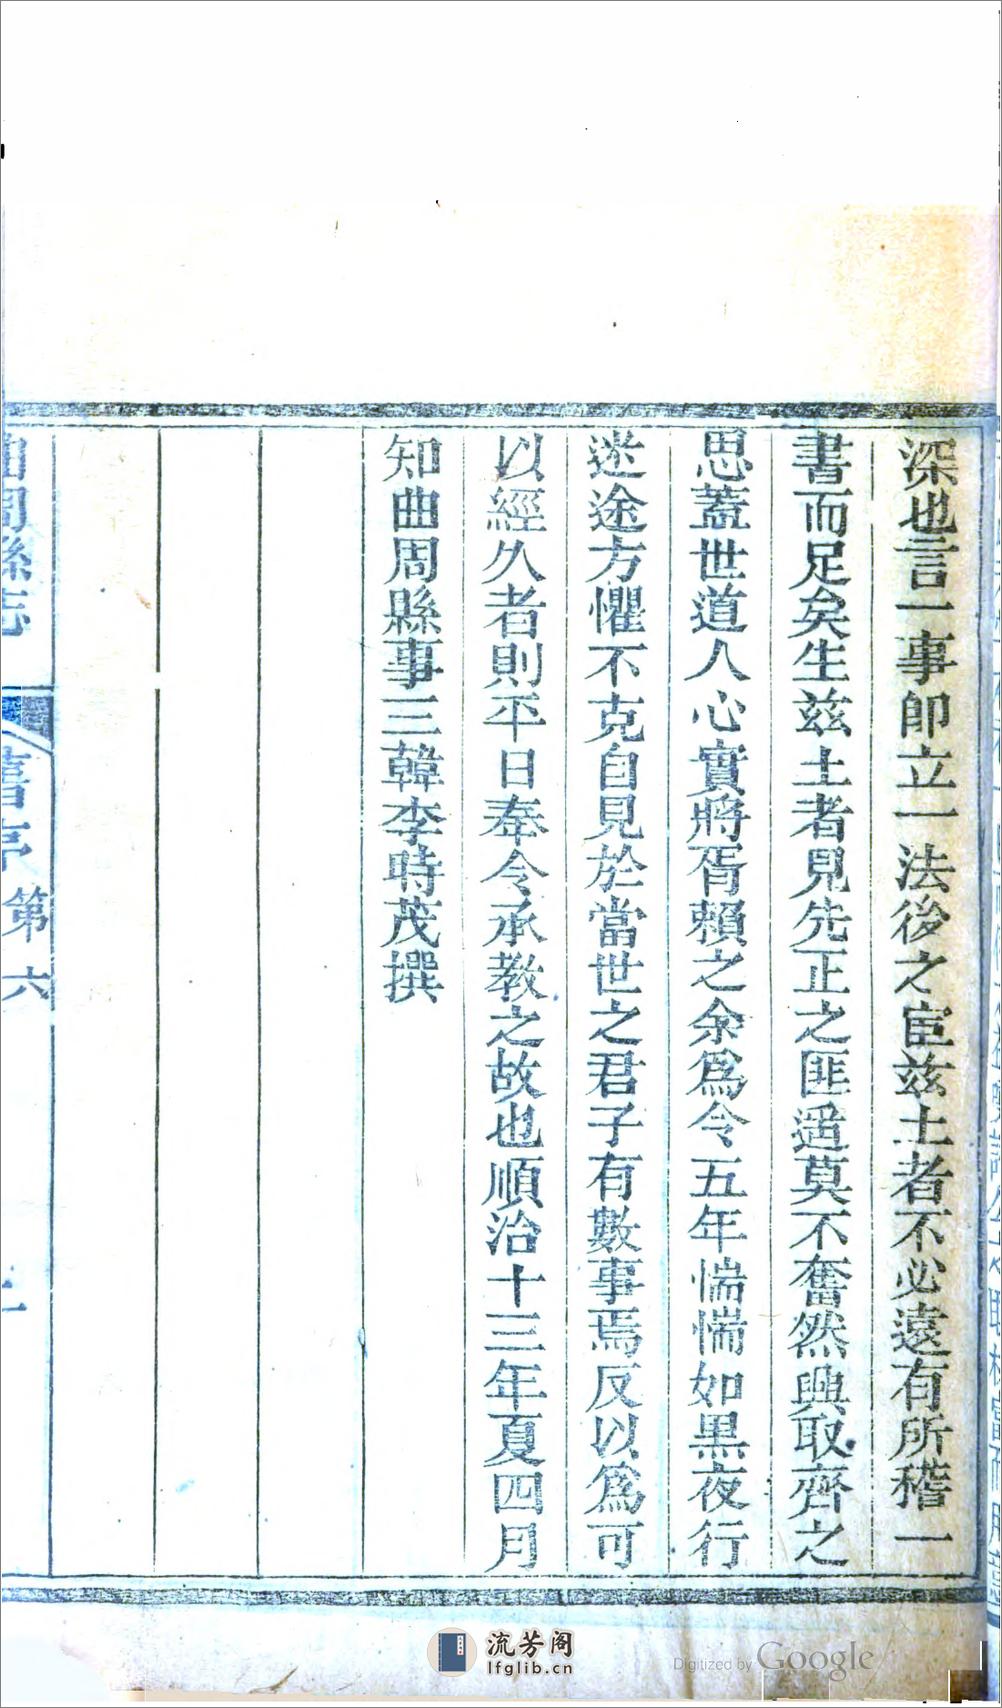 深也言一事卽立一法後之宦兹土者不必遠有所稽一
書而足矣生兹土者見先正之匪遥莫不奮然興取齊之
思蓋世道人心實將胥賴之余爲令五年惴惴如黑夜行
迷途方懼不克自見於當世之君子有數事焉反以爲可
以經久者則平日奉令承教之故也順治十三年夏四月
知曲周縣事三韓李時茂撰
曲周縣志
舊序 第六
流芳阁
lfglib.cn
Digitized by Google